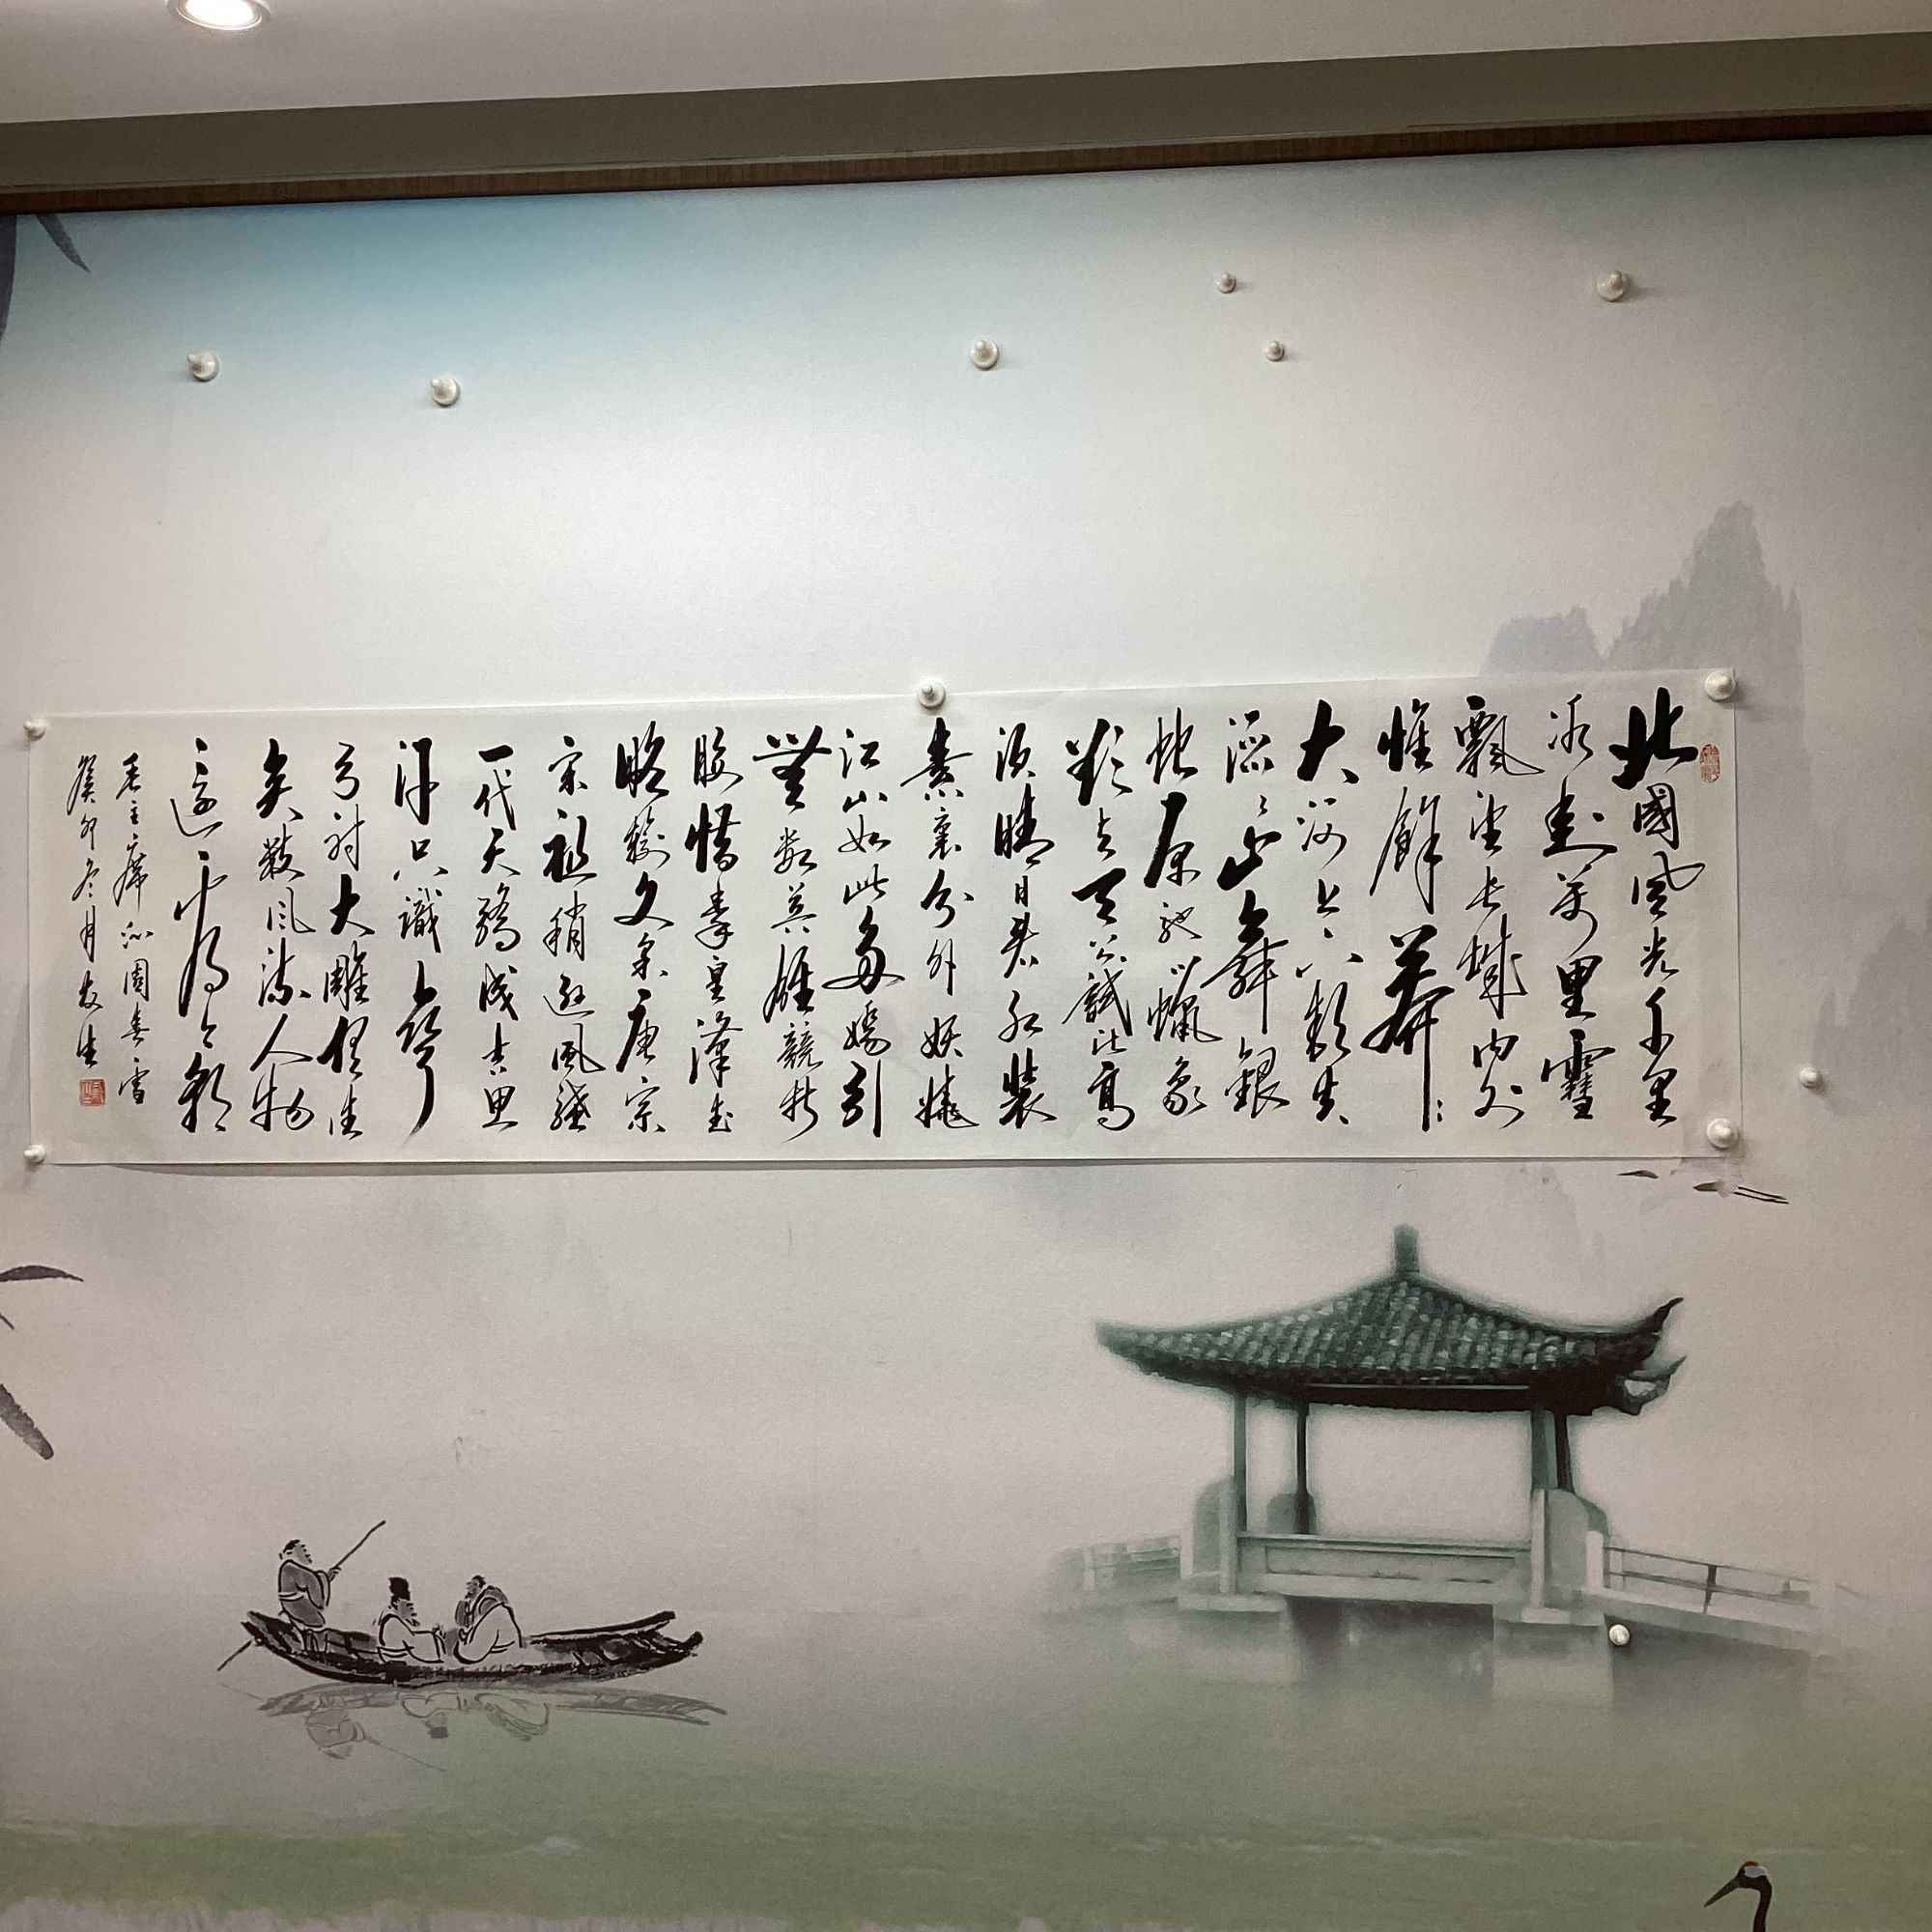 北國风光千里
冰封萬里雪
飘望长城内外
惟餘莽ミ
大河上下顿失
滔ミ山舞銀
蛇原驰蠟象
欲与天公試比高
须晴日看红装
素裹分外妖娆
江山如此多嬌引
無数英雄競折
腰惜秦皇漢武
略输文采唐宗
宋祖稍逊风骚
一代天骄成吉思
汗只識弯
弓射大雕俱往
矣数风流人物
還看今朝
毛主席沁園春雪
癸卯冬月友生